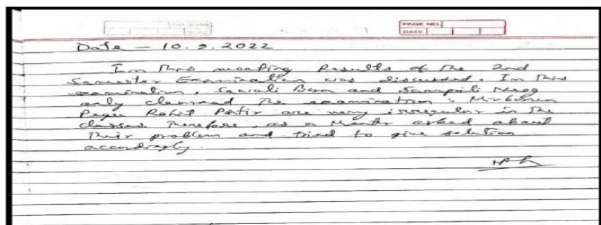 PAGE NO.
DATE
Date - 10.9.2022
In this meeting Results of the 2nd
Semester Examination was discussed. In this
examination, and
only cleared the examination.
Pegu Rohit Patir are very irregular in the
classes. Therefore, as a Mentor asked about
their problem and tried to give solution
accordingly.